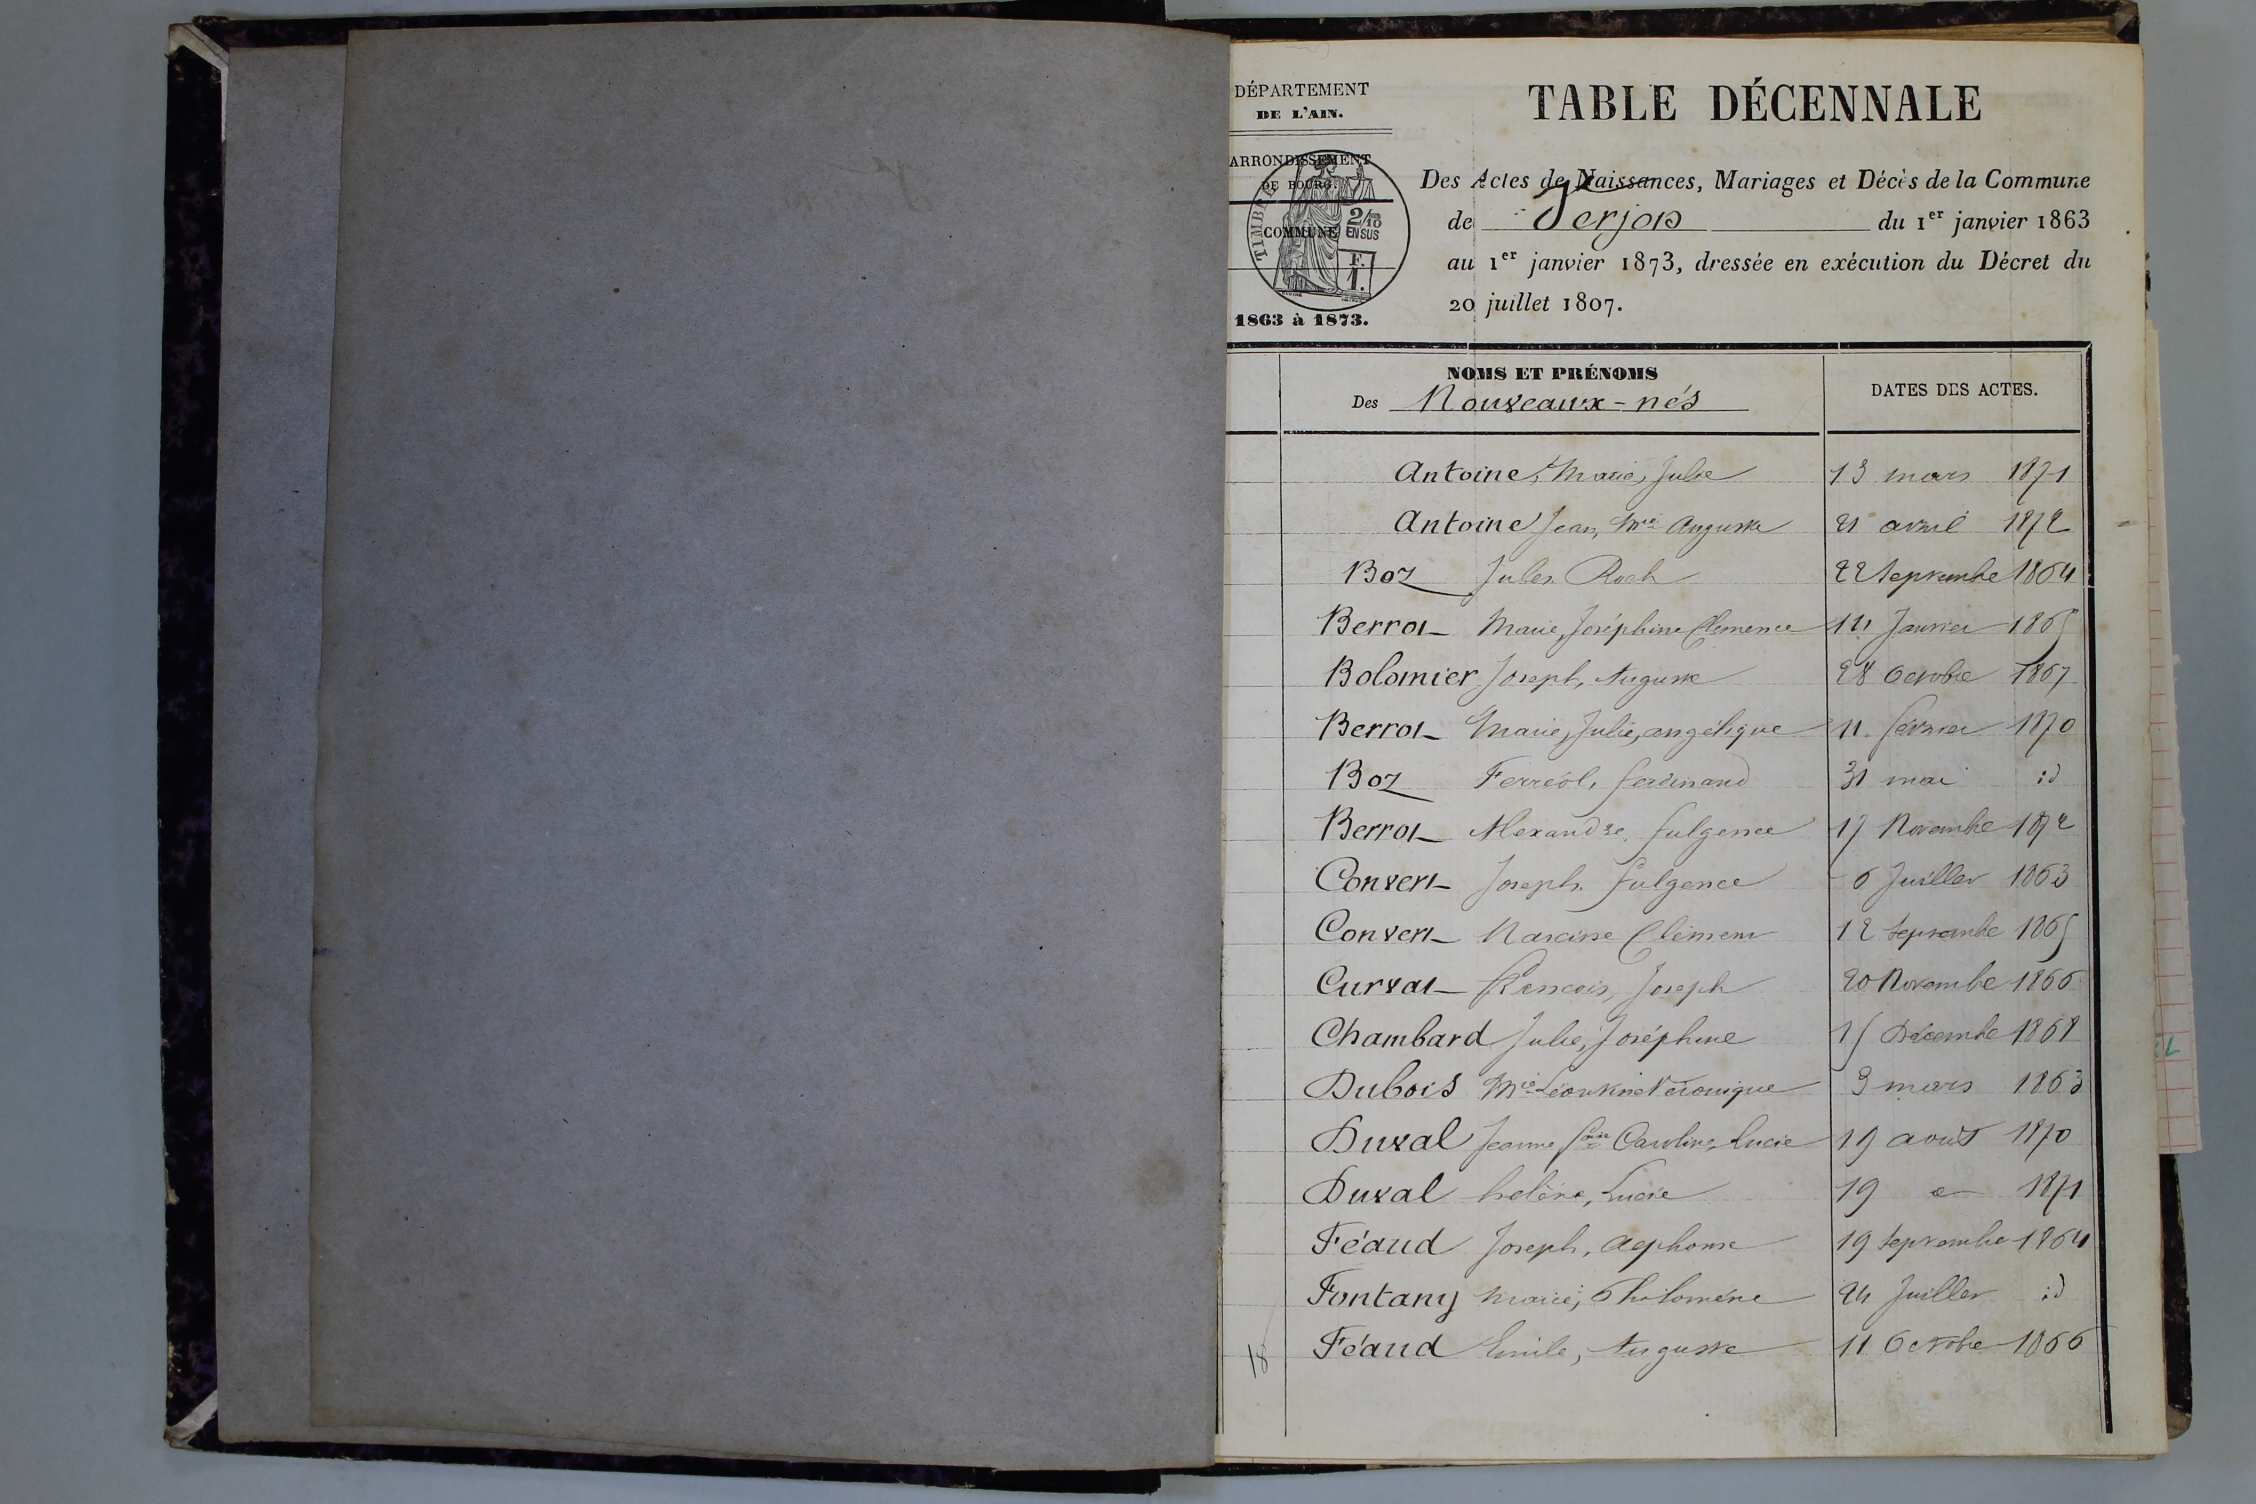 DÉPARTEMENT
DE L'AIN.
ARRONDISSEMENT
DE BOURG.
TIMBRE
2/10 EN SUS
COMMUNE
F.
1.
1863 à 1873.
TABLE DÉCENNALE
Des Actes de Naissances, Mariages et Décès de la Commune
de Verjon du 1er janvier 1863
au 1er janvier 1873, dressée en exécution du Décret du
20 juillet 1807.
NOMS ET PRÉNOMS
Des Nouveaux-nés
DATES DES ACTES.
Antoine, Marie, Julie 13 mars 1871
Antoine Jean, Mie Auguste 21 avril 1872
Boz Jules Roch 22 Septembre 1864
Berrot Marie, Joséphine Clemence Janvier 1865
Bolomier Joseph, Auguste 28 Octobre 1867
Berrot Marie, Julie, angélique 11 février 1870
Boz Ferréol, ferdinand 31 mai id
Berrot Alexandre fulgence 17 Novembre 1872
Convert Joseph fulgence 6 Juillet 1863
Convert Narcisse Clément 12 Septembre 1865
Curvat francois, Joseph 20 Novembre 1866
Chambard Julie, Joséphine 15 Décembre 1868
Dubois Mie Léontine Véronique 3 mars 1863
Duval Jeanne Caroline, Lucie 19 août 1870
Duval heléne, Lucie 19 1871
Féaud Joseph, alphonse 19 Septembre 1864
Fontany marie, Philoméne 24 Juillet id
Féaud Emile, Auguste 11 Octobre 1866
18